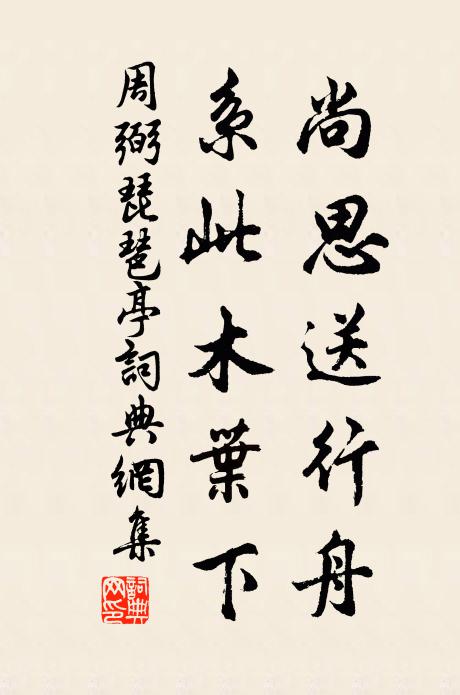 尚思送行舟
系此木葉下
周弼琵琶亭詞典網集
詞典網印